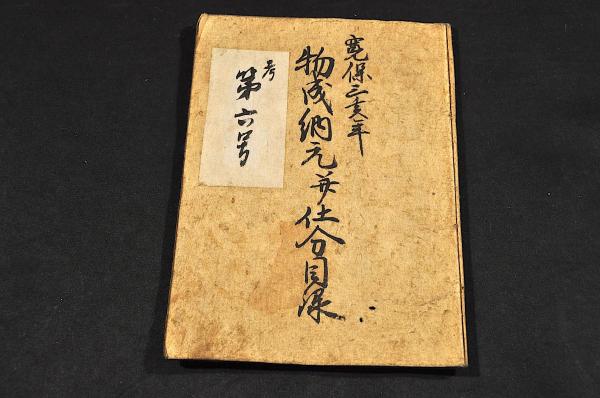 寛保三亥年
物成納元并仕分目録
考
第六号